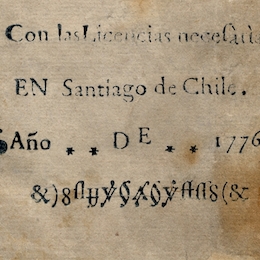 Con las Licencias necesari
EN Santiago de Chile.
Año .. DE .. 1776